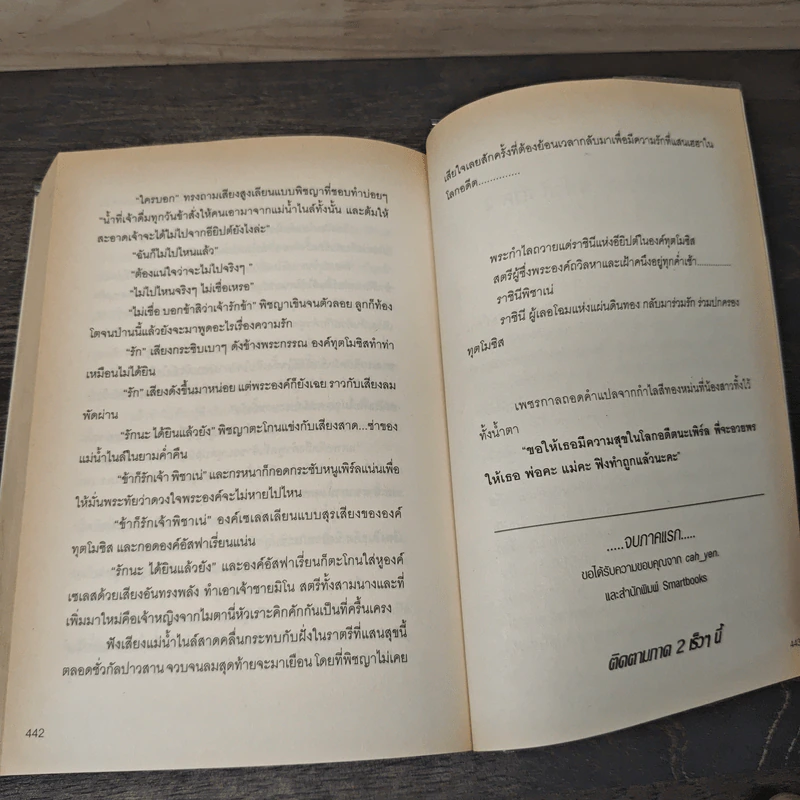 "ใครบอก" ทรงถามเสียงสูงเลียนแบบพิชญาที่ชอบทำบ่อยๆ
"น้ำที่เจ้าดื่มทุกวันข้าสั่งให้คนเอามาจากแม่น้ำไนล์ทั้งนั้น และต้มให้
สะอาดเจ้าจะได้ไม่ไปจากอียิปต์ยังไงล่ะ"
"ฉันก็ไม่ไปไหนแล้ว"
"ต้องแน่ใจว่าจะไม่ไปจริงๆ "
"ไม่ไปไหนจริงๆ ไม่เชื่อเหรอ"
"ไม่เชื่อ บอกข้าสิว่าเจ้ารักข้า" พิชญาเขินจนตัวลอย ลูกก็ท้อง
โตจนป่านนี้แล้วยังจะมาพูดอะไรเรื่องความรัก
"รัก" เสียงกระซิบเบาๆ ดังข้างพระกรรณ องค์ทุตโมซิสทำท่า
เหมือนไม่ได้ยิน
"รัก" เสียงดังขึ้นมาหน่อย แต่พระองค์ก็ยังเฉย ราวกับเสียงลม
พัดผ่าน
"รักนะ ได้ยินแล้วยัง" พิชญาตะโกนแข่งกับเสียงสาด...ซ่าของ
แม่น้ำไนล์ในยามค่ำคืน
"ข้าก็รักเจ้า พิชาเน่" และกรหนาก็กอดกระชับหนูเพิร์ลแน่นเพื่อ
ให้มั่นพระทัยว่าดวงใจพระองค์จะไม่หายไปไหน
"ข้าก็รักเจ้าพิชาเน่" องค์เซเลสเลียนแบบสุรเสียงขององค์
ทุตโมซิส และกอดองค์อัสฟาเรี่ยนแน่น
"รักนะ ได้ยินแล้วยัง" และองค์อัสฟาเรี่ยนก็ตะโกนใส่หูองค์
เซเลสด้วยเสียงอันทรงพลัง ทำเอาเจ้าชายมิโน สตรีทั้งสามนางและที่
เพิ่มมาใหม่คือเจ้าหญิงจากไมตานี่หัวเราะคิกคักกันเป็นที่ครื้นเครง
ฟังเสียงแม่น้ำไนล์สาดคลื่นกระทบกับฝั่งในราตรีที่แสนสุขนี้
ตลอดชั่วกัลปาวสาน จวบจนลมสุดท้ายจะมาเยือน โดยที่พิชญาไม่เคย
442
เสียใจเลยสักครั้งที่ต้องย้อนเวลากลับมาเพื่อมีความรักที่แสนเฮฮาใน
โลกอดีต.............
พระกำไลถวายแด่ราชินีแห่งอียิปต์ในองค์ทุตโมซิส
สตรีผู้ซึ่งพระองค์ถวิลหาและเฝ้าคนึงอยู่ทุกค่ำเช้า...........
ราชินีพิชาเน่
ราชินี ผู้เลอโฉมแห่งแผ่นดินทอง กลับมาร่วมรัก ร่วมปกครอง
ทุตโมซิส
เพชรกาลถอดคำแปลจากกำไลสีทองหม่นที่น้องสาวทิ้งไว้
ทั้งน้ำตา
"ขอให้เธอมีความสุขในโลกอดีตนะเพิร์ล พี่จะอวยพร
ให้เธอ พ่อคะ แม่คะ ฟิงทำถูกแล้วนะคะ"
.....จบภาคแรก.....
ขอได้รับความขอบคุณจาก cah_yen.
และสำนักพิมพ์ Smartbooks
ติดตามภาค 2 เร็วๆ นี้
443